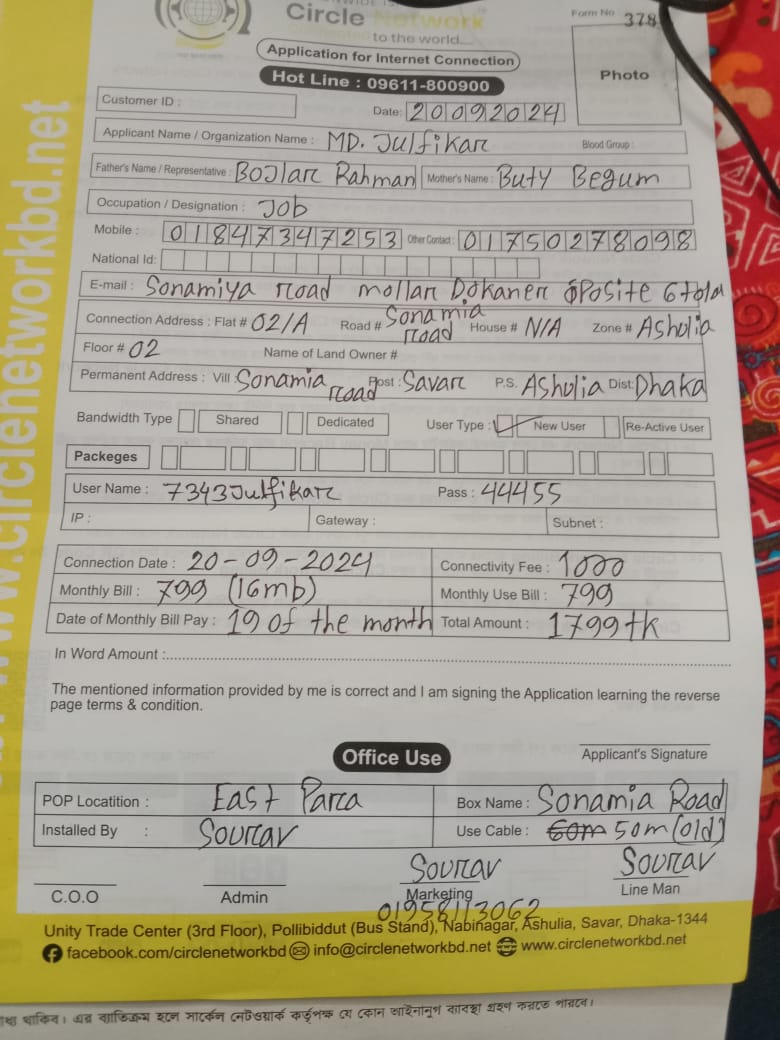 Circle Network
to the world...
Form No 378
Application for Internet Connection
Hot Line : 09611-800900
Photo
Customer ID :
Date: 20092024
Applicant Name / Organization Name : MD. Julfikar Blood Group :
Father's Name / Representative : Bojlar Rahman Mother's Name : Buty Begum
Occupation / Designation : Job
Mobile : 01847347253 Other Contact : 01750278098
National Id:
E-mail : Sonamiya road mollar Dokaner oposite 6 tola
Connection Address : Flat # 02/A Road # Sonamia road House # N/A Zone # Ashulia
Floor # 02 Name of Land Owner #
Permanent Address : Vill : Sonamia road Post : Savar P.S. Ashulia Dist: Dhaka
Bandwidth Type Shared Dedicated User Type : New User Re-Active User
Packeges
User Name : 7343Julfikar Pass : 44455
IP : Gateway : Subnet :
Connection Date : 20-09-2024 Connectivity Fee : 1000
Monthly Bill : 799 (16mb) Monthly Use Bill : 799
Date of Monthly Bill Pay : 19 of the month Total Amount : 1799 tk
In Word Amount :
The mentioned information provided by me is correct and I am signing the Application learning the reverse
page terms & condition.
Office Use
Applicant's Signature
POP Locatition : East Para Box Name : Sonamia Road
Installed By : Sourav Use Cable : 60m 50m (old)
Sourav Sourav
C.O.O Admin Marketing Line Man
01958113062
Unity Trade Center (3rd Floor), Pollibiddut (Bus Stand), Nabinagar, Ashulia, Savar, Dhaka-1344
facebook.com/circlenetworkbd info@circlenetworkbd.net www.circlenetworkbd.net
www.circlenetworkbd.net
থাকিব। এর ব্যতিক্রম হলে সার্কেল নেটওয়ার্ক কর্তৃপক্ষ যে কোন আইনানুগ ব্যবস্থা গ্রহণ করতে পারবে।